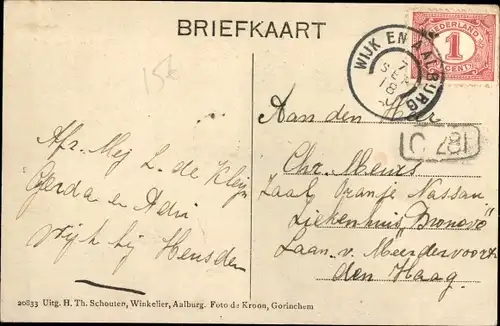 BRIEFKAART
15k
NEDERLAND
1
CENT
WIJK EN AALBURG
7
SEP
18
Aan den Heer
C 287
Chr. Meurs
Zaal Oranje Nassau
Ziekenhuis "Bronovo"
Laan v. Meerdervoort
den Haag
Afz. Mej. L. de Kleijn
Gerda en Adri
Wijk bij Heusden
20833 Uitg. H. Th. Schouten, Winkelier, Aalburg. Foto de Kroon, Gorinchem